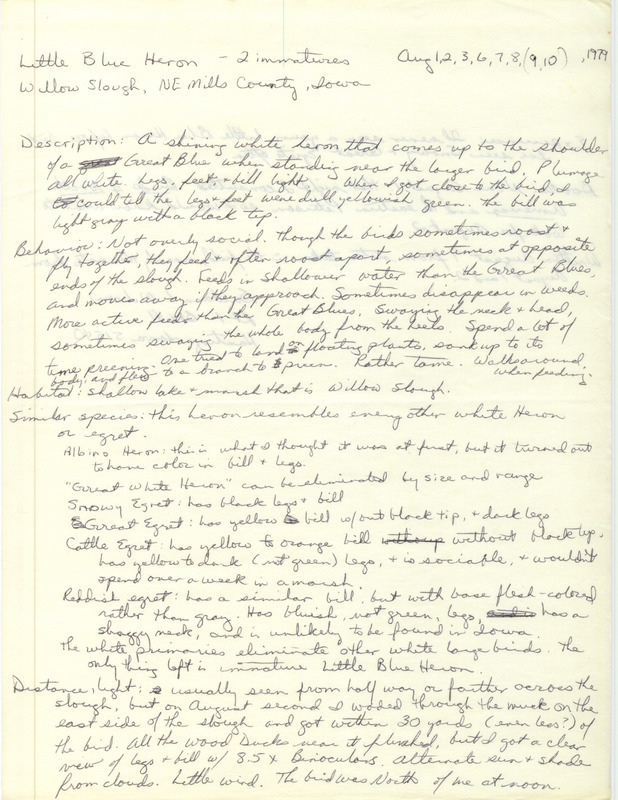 Little Blue Heron - 2 immatures Aug 1, 2, 3, 6, 7, 8, (9, 10), 1979
Willow Slough, NE Mills County, Iowa
Description: A shining white heron that comes up to the shoulder
of a Great Blue when standing near the larger bird. Plumage
all white. Legs, feet & bill light. When I got close to the bird, I
could tell the legs & feet were dull yellowish green. The bill was
light gray with a black tip.
Behavior: Not overly social. Though the birds sometimes roost &
fly together, they feed & often roost apart, sometimes at opposite
ends of the slough. Feeds in shallower water than the Great Blues,
and moves away if they approach. Sometimes disappear in weeds.
More active feeder than the Great Blues. Swaying the neck & head,
sometimes swaying the whole body from the heels. Spend a lot of
time preening. One tried to land on floating plants, sank up to its
body, and flew to a branch to preen. Rather tame. Walks around
when feeding.
Habitat: Shallow lake & marsh that is Willow Slough.
Similar species: this heron resembles every other white Heron
or egret.
Albino Heron: this is what I thought it was at first, but it turned out
to have color in bill & legs.
"Great White Heron" can be eliminated by size and range
Snowy Egret: has black legs & bill
Great Egret: has yellow bill w/out black tip, & dark legs
Cattle Egret: has yellow to orange bill without black tip,
has yellow to dark (not green) legs, & is sociable, & wouldn't
spend over a week in a marsh.
Reddish egret: has a similar bill, but with base flesh-colored
rather than gray. Has bluish, not green, legs, has a
shaggy neck, and is unlikely to be found in Iowa.
The white primaries eliminate other white large birds. The
only thing left is immature Little Blue Heron.
Distance, light: usually seen from half way or farther across the
slough, but on August second I waded through the muck on the
east side of the slough and got within 30 yards (even less?) of
the bird. All the Wood Ducks near it flushed, but I got a clear
view of legs & bill w/ 8.5 x Binoculars. Alternate sun & shade
from clouds. Little wind. The bird was North of me at noon.